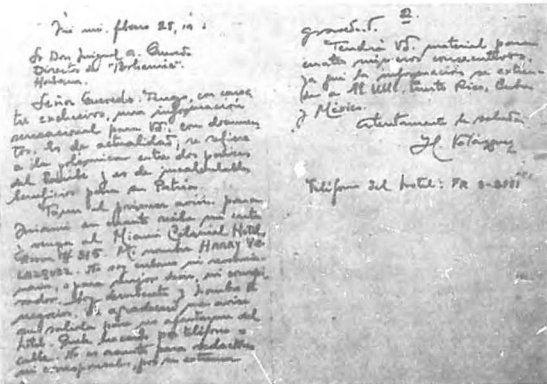 febrero 25,
Sr Don Miguel A. Quevedo
Director de "Bohemia".
Habana.
Señor Quevedo: Tengo, con
exclusivo, una información
sensacional para Vd., con documen
tos. Es de actualidad, se refiere
a la polémica entre dos
del Caribe y es de incalculables
beneficios para su Patria.
Tome el primer avión para
Miami en cuanto reciba mi carta
y venga al Miami Colonial Hotel,
Room # 315. Mi nombre HARRY VE
LAZQUEZ. No soy cubano ni
o para mejor decir, ni conspi
rador. Soy demócrata y hombre de
negocios. Le agradeceré me avise
su salida para
hotel. Puede hacerlo por teléfono o
cable. No es asunto para redactores
ni corresponsales, por su extrema
2
gravedad.
Tendrá Vd. material para
cuatro números consecutivos,
ya que la información se extien
de a EE UU, Puerto Rico, Cuba
y México.
atentamente le saluda,
H. Velázquez
Teléfono del hotel: FR